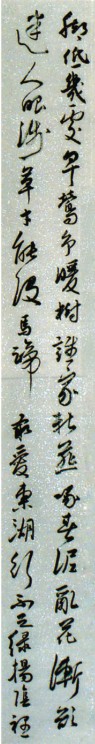 脚低幾處早鶯爭暖樹誰家新燕啄春泥亂花漸欲
迷人眼淺草才能没馬蹄最愛東湖行不足绿楊陰裡